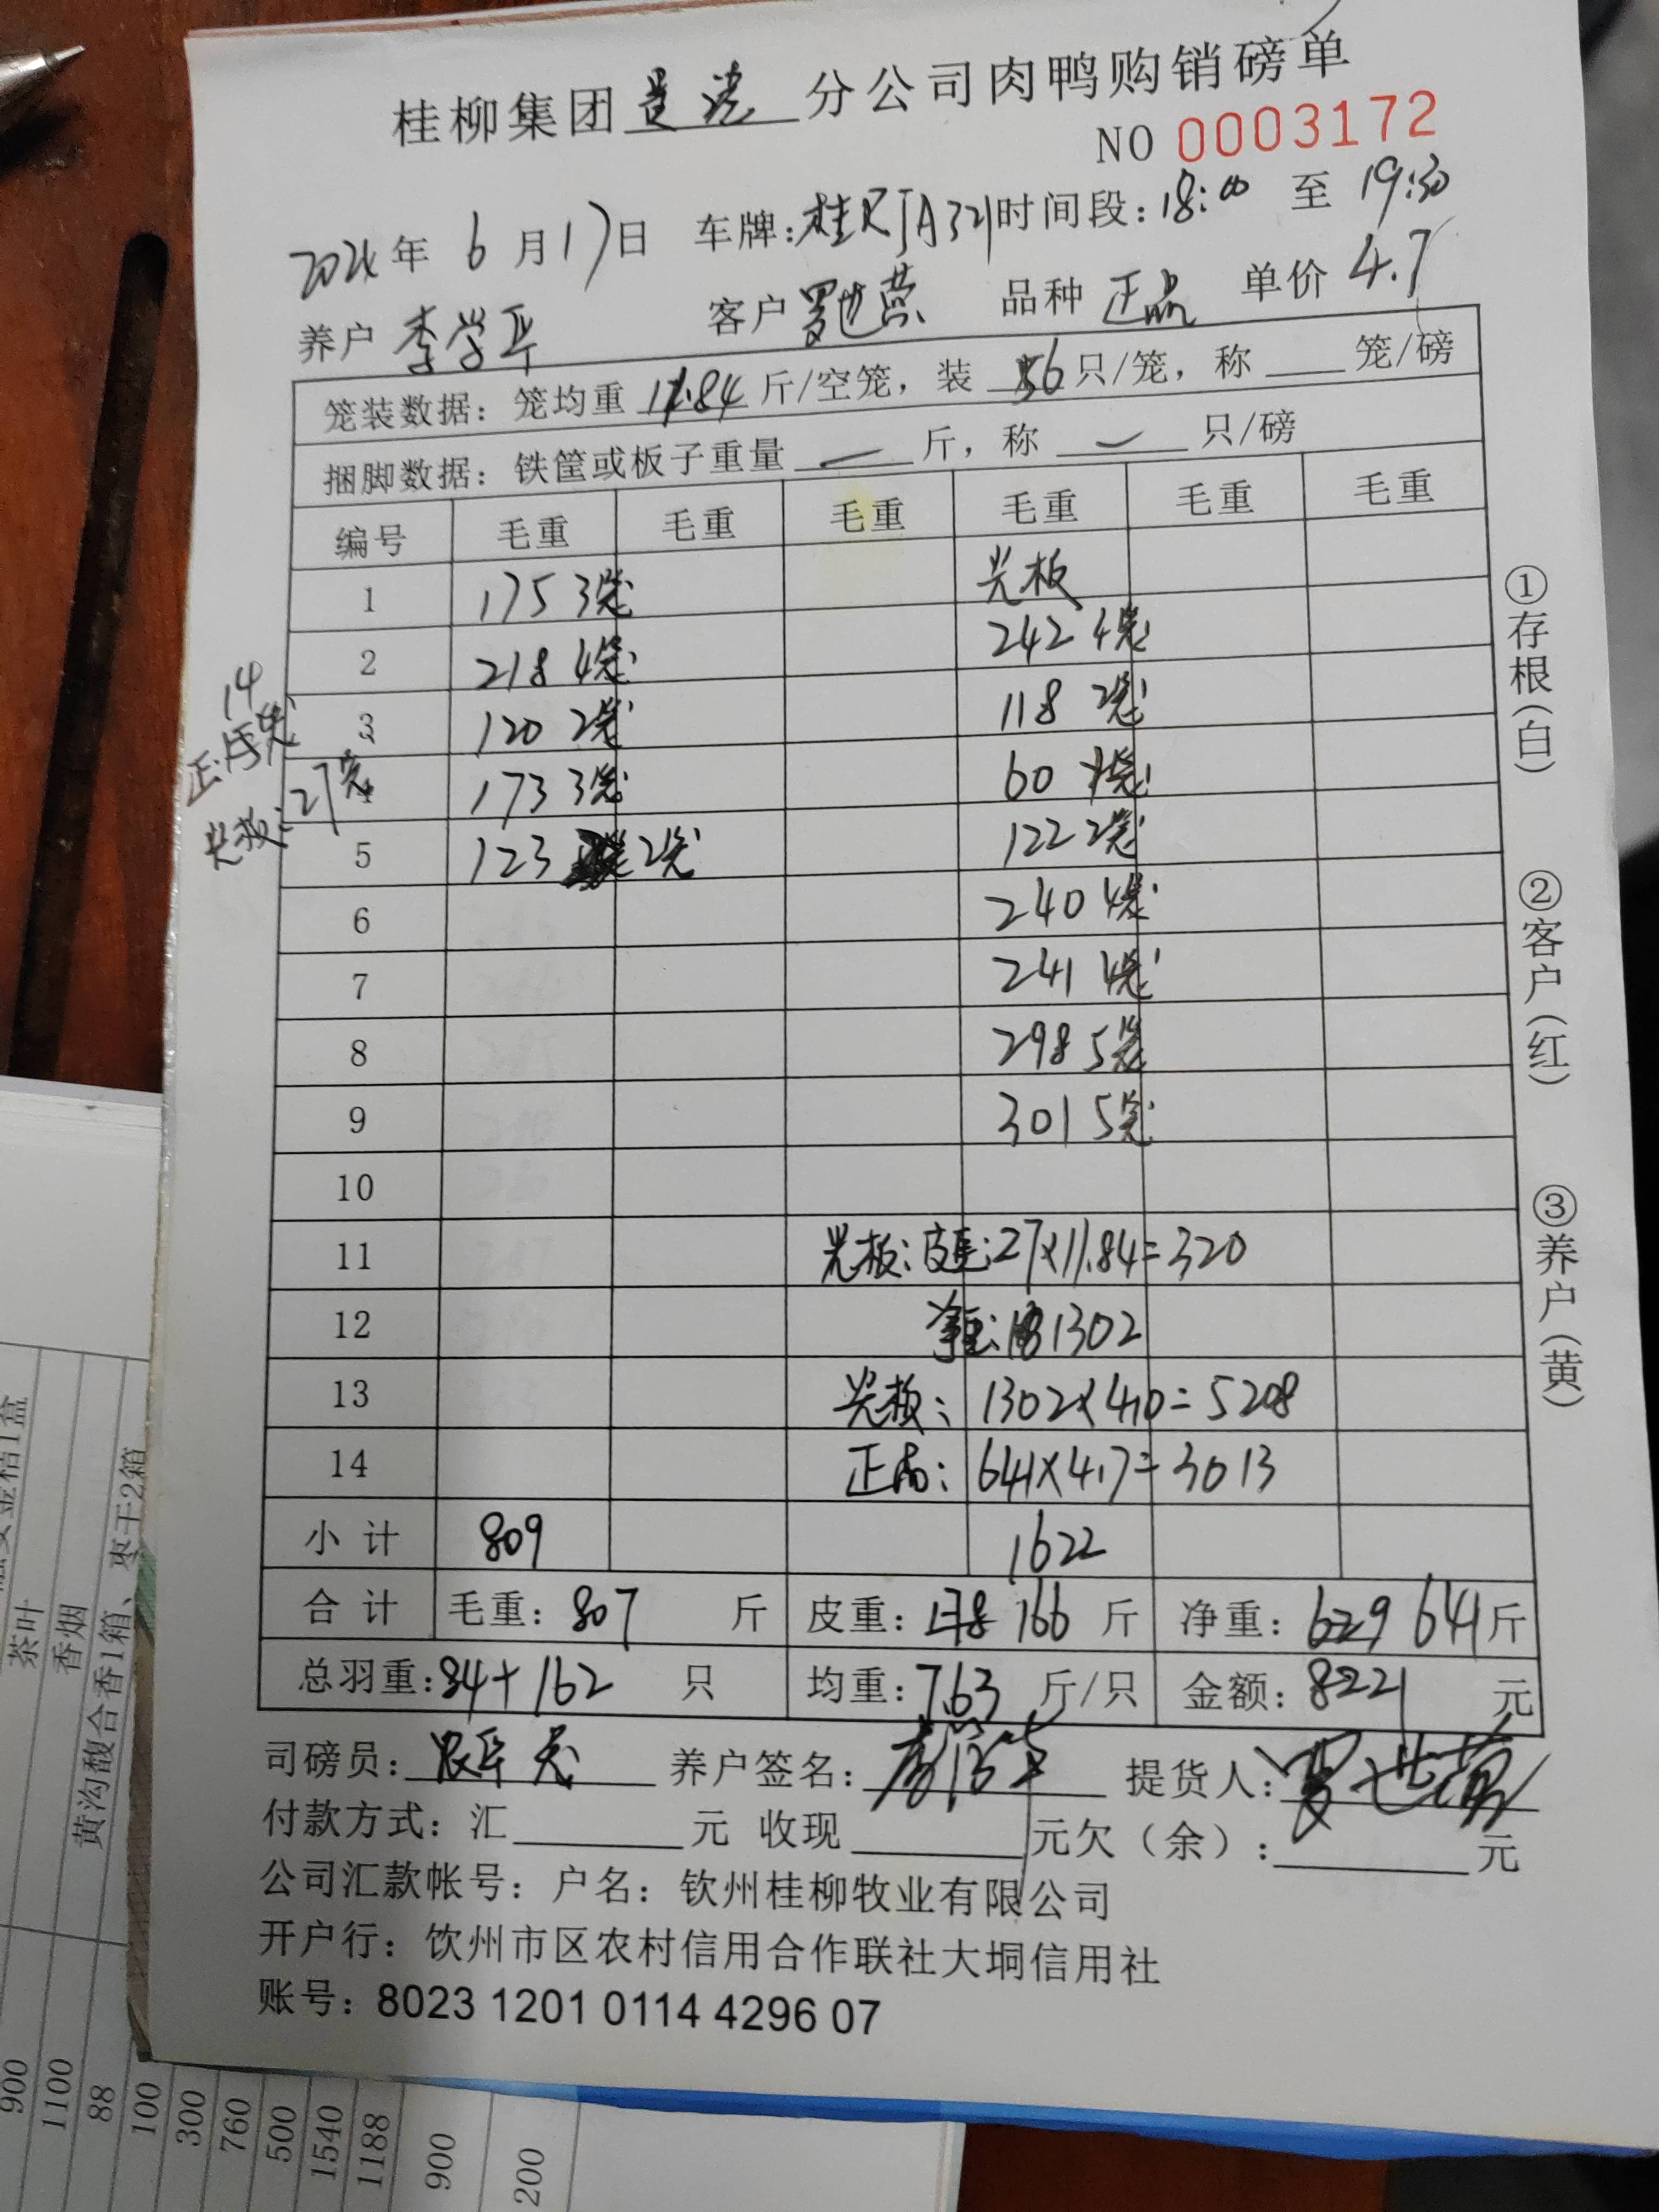 桂柳集团 分公司肉鸭购销磅单
NO 0003172
2024年 6月17日 车牌: 时间段:18:00 至 19:30
养户 李学平 客户 罗世营 品种 正品 单价 4.7
笼装数据: 笼均重 11.84 斤/空笼, 装 6 只/笼, 称 笼/磅
捆脚数据: 铁筐或板子重量 — 斤, 称 — 只/磅
编号 毛重 毛重 毛重 毛重 毛重 毛重
1 175 3笼 光板
2 218 4笼 242 4笼
3 120 2笼 118 2笼
4 173 3笼 60 1笼
5 123 2笼 122 2笼
6 240 4笼
7 241 4笼
8 298 5笼
9 301 5笼
10
11 光板: 皮重: 27×11.84=320
12 净重: 1302
13 光板: 1302×4.0=5208
14 正品: 641×4.7=3013
小计 809 1622
合计 毛重: 807 斤 皮重: 166 斤 净重: 629 641斤
总羽重:84+162 只 均重:7.63 斤/只 金额:8221 元
司磅员: 养户签名: 提货人:
付款方式: 汇 元 收现 元欠(余): 元
公司汇款帐号: 户名: 钦州桂柳牧业有限公司
开户行: 饮州市区农村信用合作联社大垌信用社
账号: 8023 1201 0114 4296 07
14
正品: 笼
光板: 27笼
①存根(白)
②客户(红)
③养户(黄)
茶叶
香烟
黄沟馥合香1箱、枣干2箱
900
1100
88
100
300
760
500
1540
1188
900
200